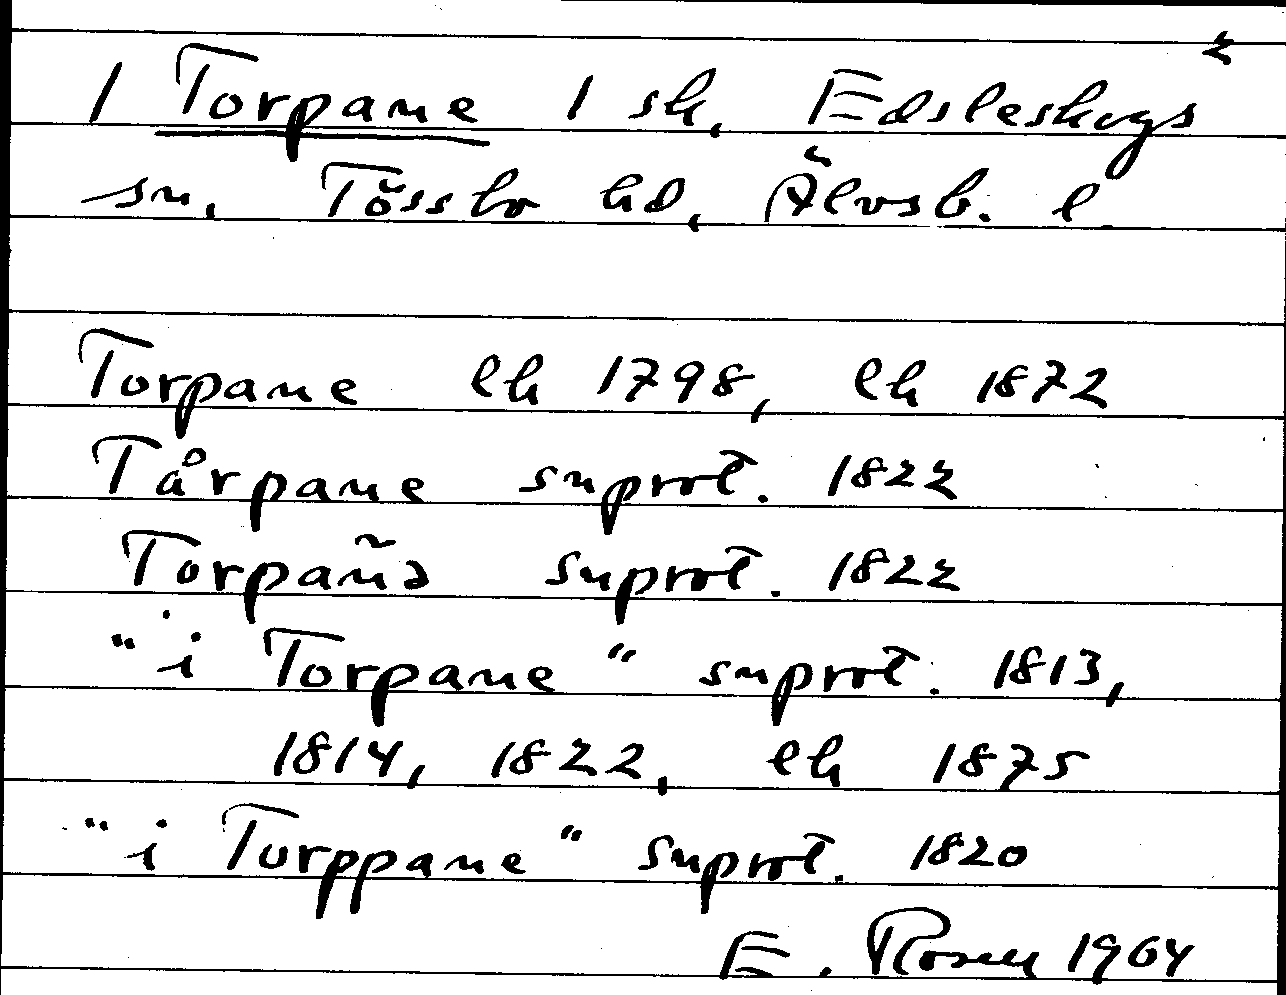 2
1 Torpane 1 sk, Edsleskogs
sn. Tössbo hd, Älvsb. l
Torpane lh 1798, lh 1872
Tårpane snprot. 1822
Torpañə snprot. 1822
"i Torpane" snprot. 1813,
1814, 1822, lh 1875
"i Torppane" snprot. 1820
E. Rosell 1964